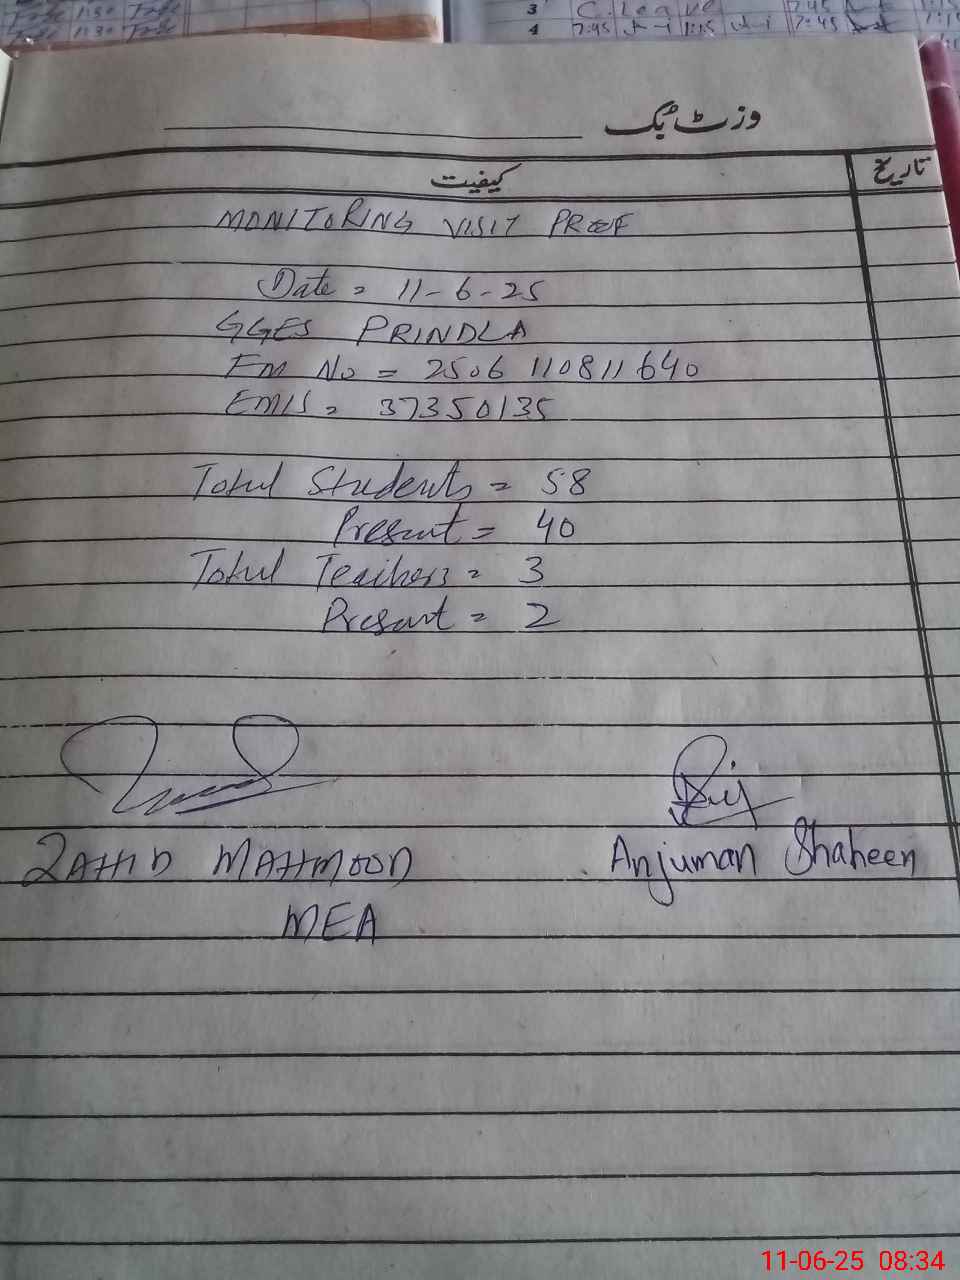 3 C. Leave
4 7:45 1:15 7:45
1:30
وزٹ بک
کیفیت تاریخ
MONITORING VISIT PROOF
Date = 11-6-25
GGES PRINDLA
FM No = 2506110811640
EMIS = 37350135
Total Students = 58
Present = 40
Total Teachers = 3
Present = 2
ZAHID MAHMOOD Anjuman Shaheen
MEA
11-06-25 08:34